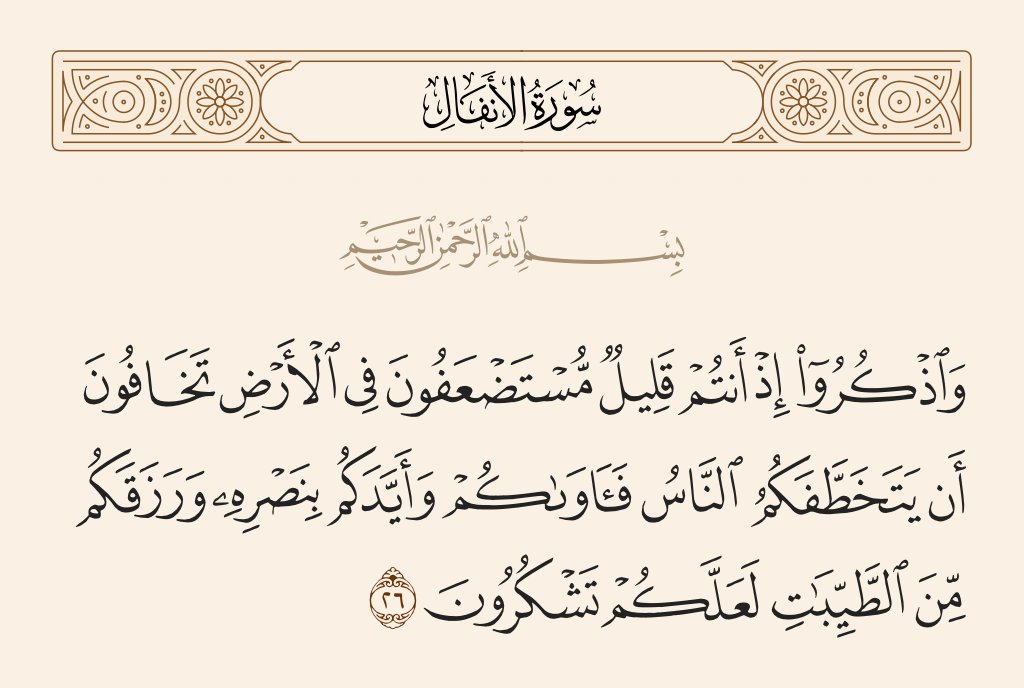 سُورَةُ الأَنفَالِ
بِسْمِ ٱللَّهِ ٱلرَّحْمَٰنِ ٱلرَّحِيمِ
وَٱذْكُرُوٓا۟ إِذْ أَنتُمْ قَلِيلٌ مُّسْتَضْعَفُونَ فِى ٱلْأَرْضِ تَخَافُونَ
أَن يَتَخَطَّفَكُمُ ٱلنَّاسُ فَـَٔاوَىٰكُمْ وَأَيَّدَكُم بِنَصْرِهِۦ وَرَزَقَكُم
مِّنَ ٱلطَّيِّبَٰتِ لَعَلَّكُمْ تَشْكُرُونَ ٢٦